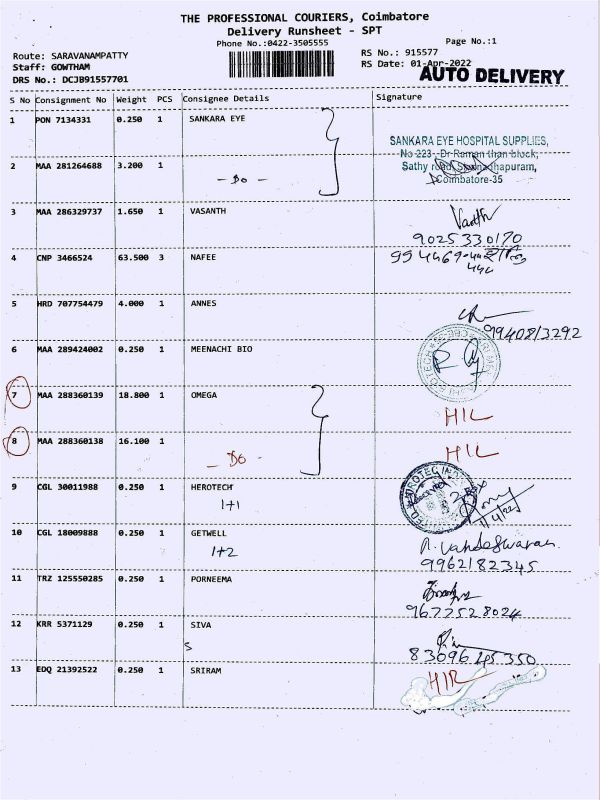 THE PROFESSIONAL COURIERS, Coimbatore
Delivery Runsheet - SPT
Phone No.:0422-3505555
Page No.:1
Route: SARAVANAMPATTY
Staff: GOWTHAM
DRS No.: DCJB91557701
RS No.: 915577
RS Date: 01-Apr-2022
AUTO DELIVERY
S No Consignment No Weight PCS Consignee Details Signature
1 PON 7134331 0.250 1 SANKARA EYE
SANKARA EYE HOSPITAL SUPPLIES,
No 223, Dr Raman than block,
2 MAA 281264688 3.200 1 Sathy road,
- Do - Coimbatore-35
3 MAA 286329737 1.650 1 VASANTH Vasanth
9025330170
4 CNP 3466524 63.500 3 NAFEE
5 HRD 707754479 4.000 1 ANNES
9940813292
6 MAA 289424002 0.250 1 MEENACHI BIO
7 MAA 288360139 18.800 1 OMEGA
HIL
8 MAA 288360138 16.100 1
- Do - HIL
9 CGL 30011988 0.250 1 HEROTECH
1+1
10 CGL 18009888 0.250 1 GETWELL
1+2
9962182345
11 TRZ 125550285 0.250 1 PORNEEMA
9677528024
12 KRR 5371129 0.250 1 SIVA
S
8309645350
13 EDQ 21392522 0.250 1 SRIRAM